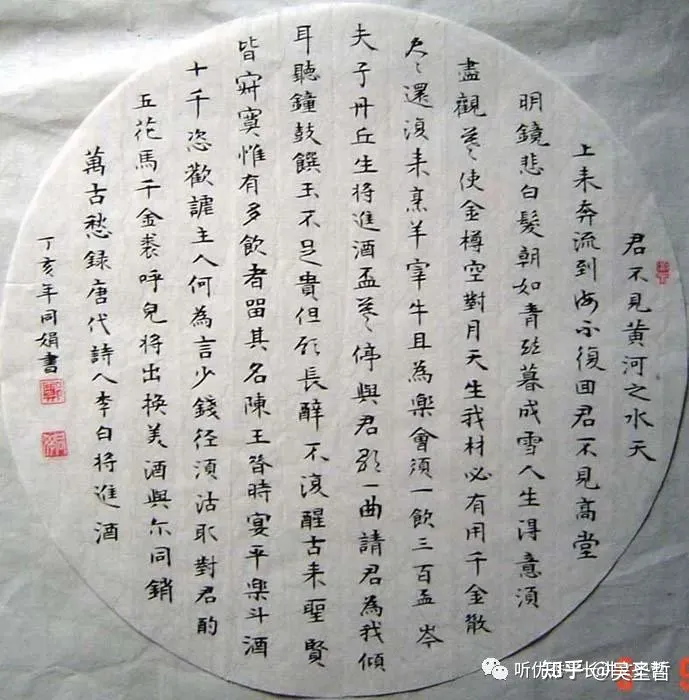 君不見黃河之水天
上来奔流到海不復回君不見高堂
明鏡悲白髮朝如青丝暮成雪人生得意須
盡觀莫使金樽空對月天生我材必有用千金散
尽還復来烹羊宰牛且為樂會須一飲三百盃岑
夫子丹丘生将進酒盃莫停與君歌一曲請君為我傾
耳聽鐘鼓饌玉不足貴但願長醉不復醒古来聖賢
皆寂寞惟有多飲者留其名陳王昔時宴平樂斗酒
十千恣歡謔主人何為言少錢径須沽取對君酌
五花馬千金裘呼兒将出換美酒與尔同銷
萬古愁録唐代詩人李白将進酒
丁亥年同娟書
知乎 @吴圣哲